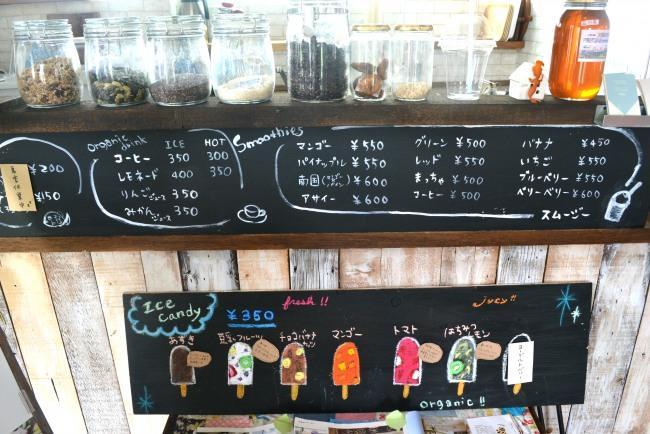 Organic drink ICE HOT
コーヒー 350 300
レモネード 400 350
りんごジュース 350
みかんジュース 350
¥200
¥150
Smoothies
マンゴー ¥550
パイナップル ¥550
南国 ¥600
アサイー ¥600
グリーン ¥500
レッド ¥550
まっちゃ ¥500
コーヒー ¥500
バナナ ¥450
いちご ¥550
ブルーベリー ¥550
ベリーベリー ¥600
スムージー
Ice candy
¥350
fresh!!
jucy!!
あずき
豆乳フルーツ
チョコバナナ
マンゴー
トマト
はちみつレモン
organic!!